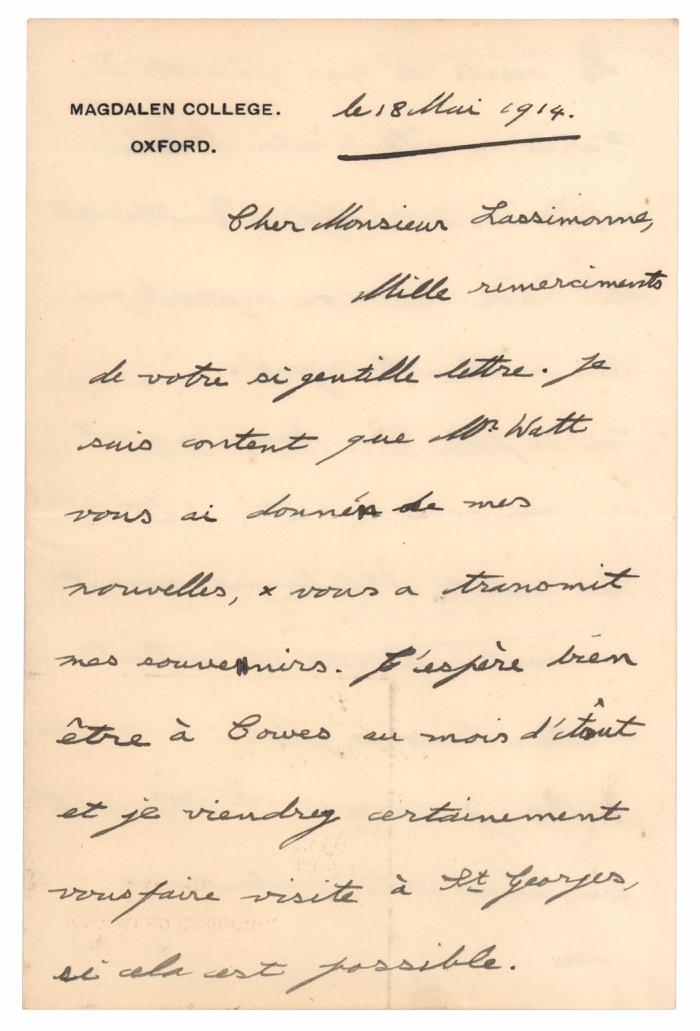 MAGDALEN COLLEGE.
OXFORD.
le 18 Mai 1914.
Cher Monsieur Lassimonne,
Mille remerciments
de votre si gentille lettre. Je
suis content que Mr. Watt
vous ai donné de mes
nouvelles, x vous a transmit
mes souvenirs. J'espère bien
être à Cowes au mois d'Août
et je viendrey certainement
vous faire visite à St. Georges,
si cela est possible.